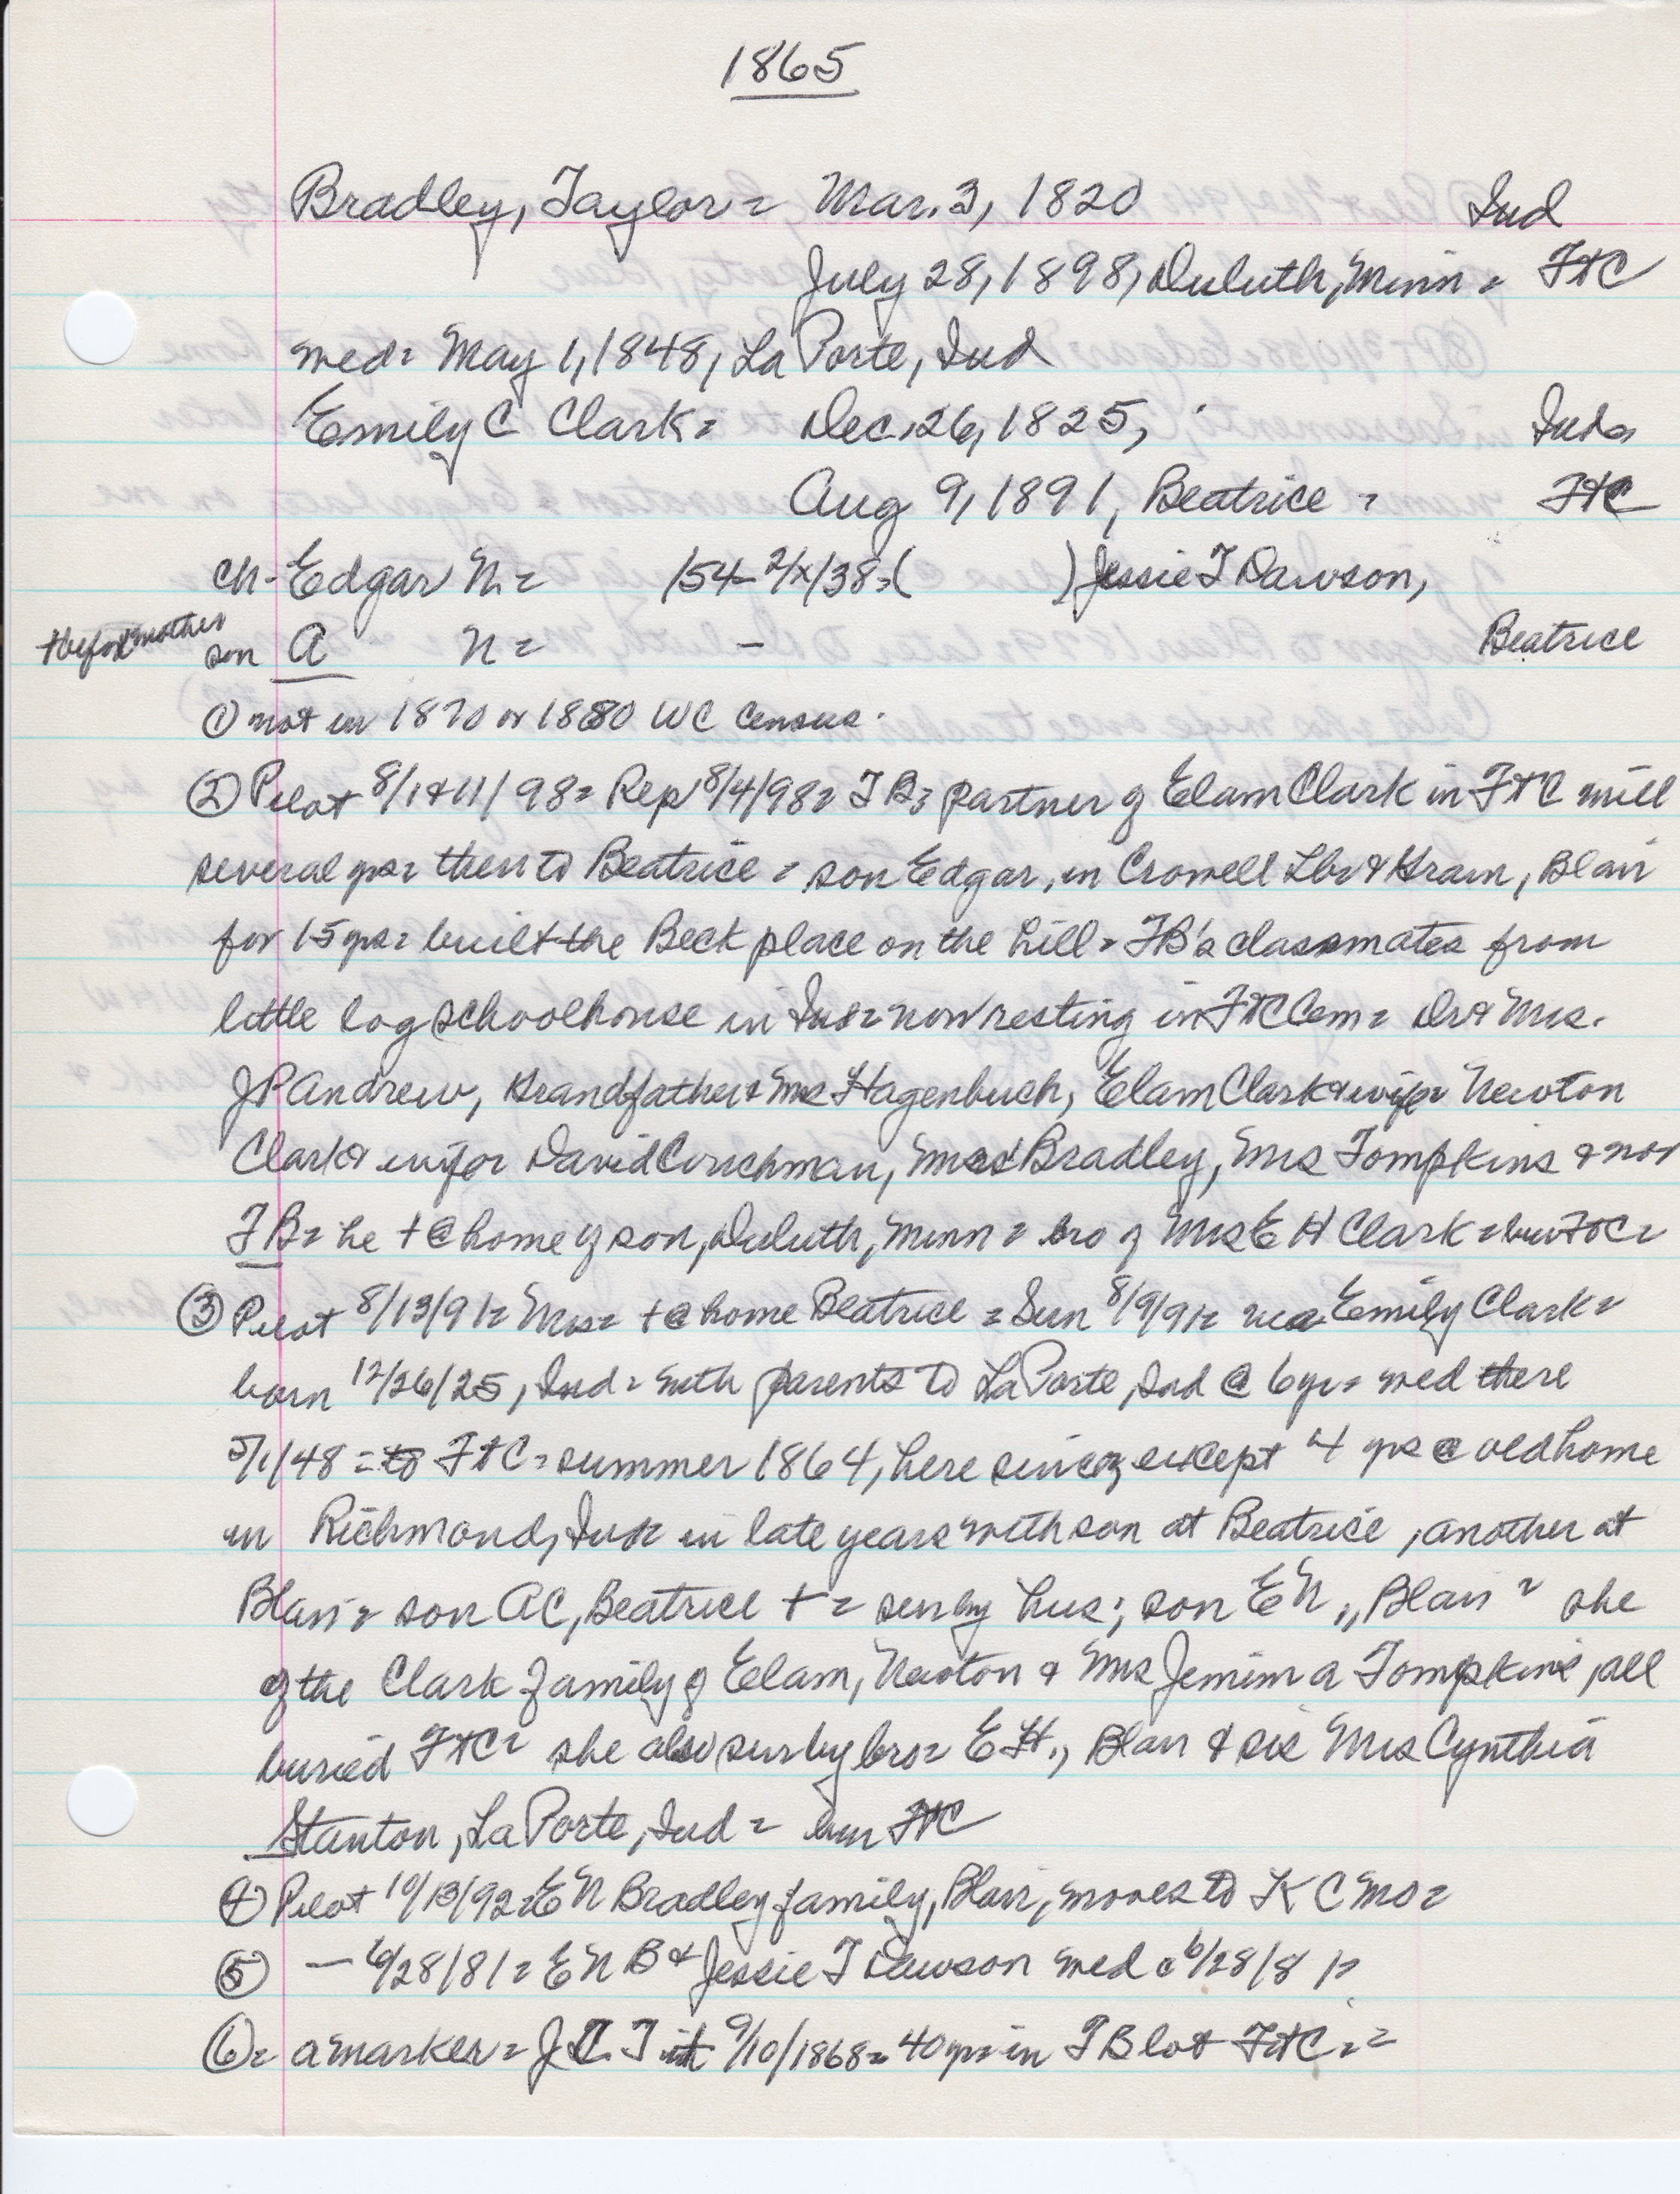 1865
Bradley, Taylor = Mar. 3, 1820 Ind
July 28, 1898, Duluth, Minn = FtC
med = May 1, 1848, La Porte, Ind
Emily C Clark = Dec. 26, 1825, Ind
Aug 9, 1891, Beatrice = FtC
ch - Edgar N. = /54 - 2/x/38 = ( ) Jessie T Dawson,
† before mother son A N = - Beatrice
① not in 1870 or 1880 WC Census.
② Pilot 8/1 & 11/98 = Rep 8/4/98 = TB = partner of Elam Clark in FtC mill
several yrs = then to Beatrice = son Edgar, in Crowell Lbr & Grain, Blair
for 15 yrs = built the Beck place on the hill = TB's classmates from
little log schoolhouse in Ind = now resting in FtC Cem = Dr & Mrs.
JP Andrew, Grandfather & Mrs Hagenbuch, Elam Clark & wife = Newton
Clark & wife David Couchman, Mrs Bradley, Mrs Tompkins & now
TB = he † @ home of son, Duluth, Minn = bro of Mrs E H Clark = bur FtC =
③ Pilot 8/13/91 = Mrs = † @ home Beatrice = Sun 8/9/91 = Emily Clark =
born 12/26/25, Ind = with parents to La Porte, Ind @ 6 yr = med there
5/1/48 = to FtC = summer 1864, here since, except 4 yrs @ old home
in Richmond, Ind = in late years with son at Beatrice, another at
Blair = son AC, Beatrice † = sur by hus; son EN, Blair = she
of the Clark family of Elam, Newton & Mrs Jemima Tompkins, all
buried FtC = she also sur by bro = E H., Blair & sis Mrs Cynthia
Stanton, La Porte, Ind = bur FtC
④ Pilot 10/13/92 = E N Bradley family, Blair, moves to K C Mo =
⑤ — 6/28/81 = E N B & Jessie T Dawson med 6/28/81 =
⑥ = a marker = J T 9/10/1868 = 40 yrs = in TB lot FtC = =